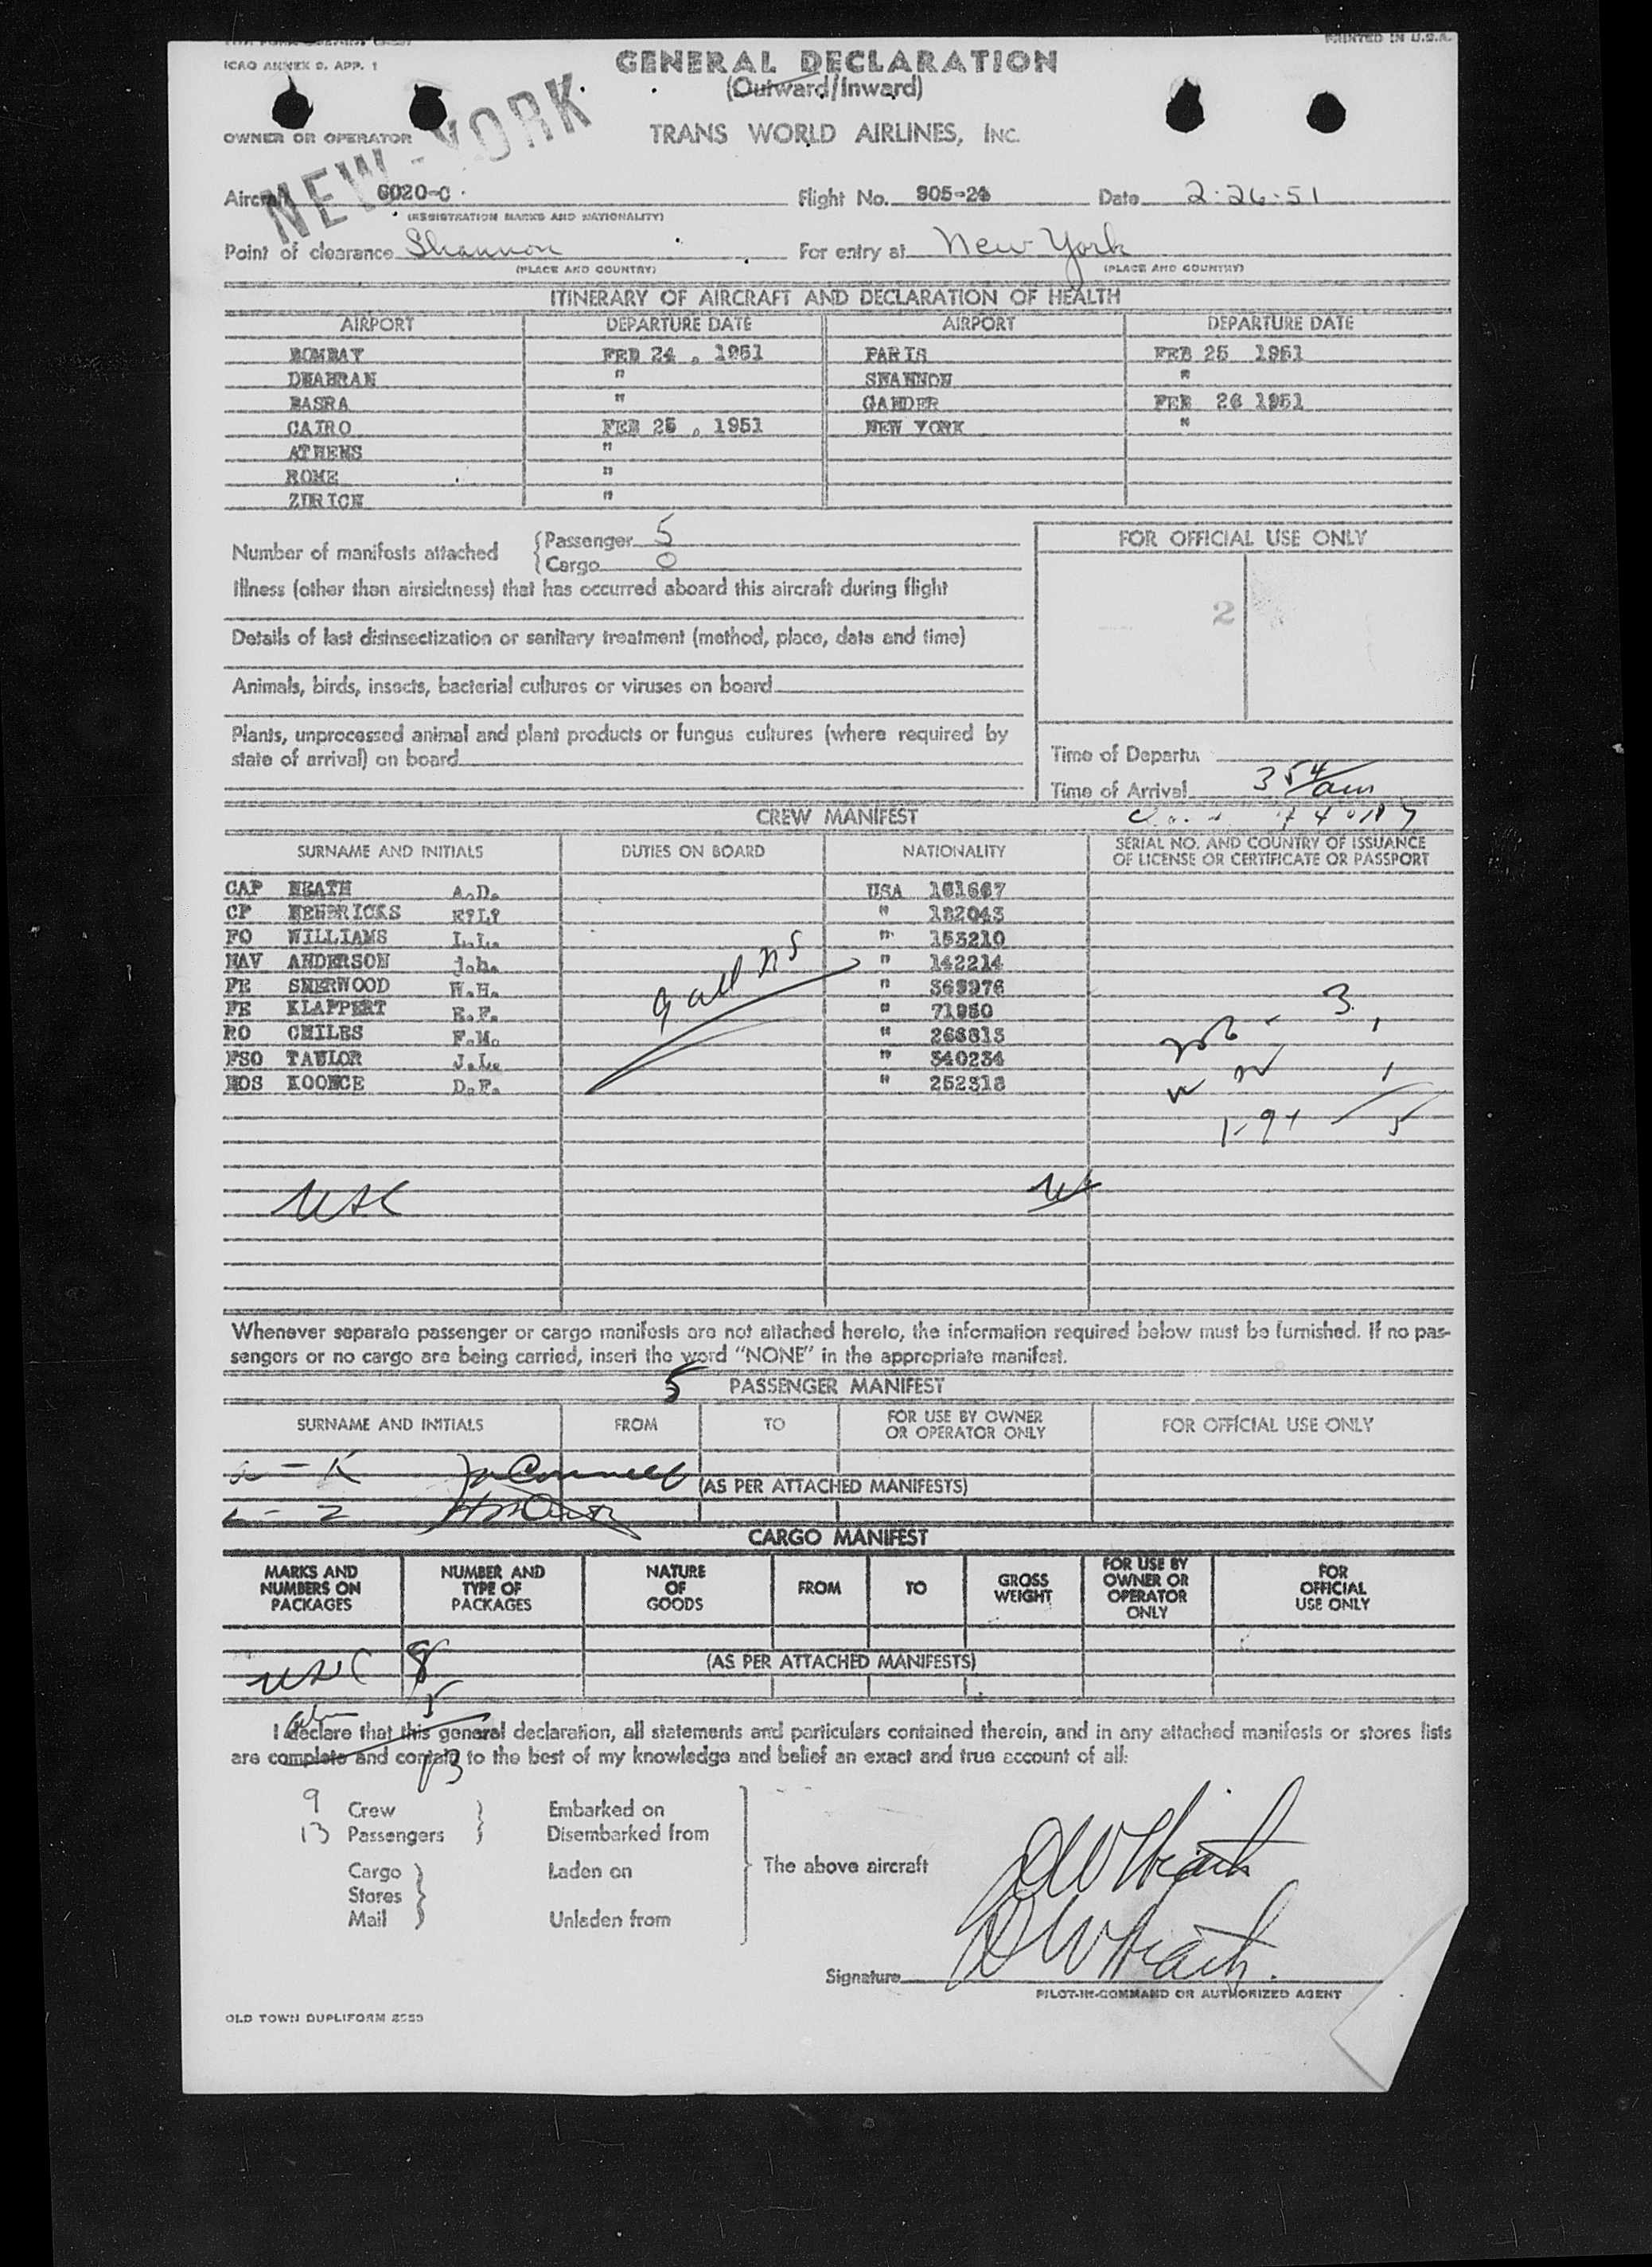 PRINTED IN U.S.A.
ICAO ANNEX 9, APP. 1
GENERAL DECLARATION
(Outward/Inward)
NEW YORK
OWNER OR OPERATOR
TRANS WORLD AIRLINES, INC.
Aircraft 6020-C Flight No. 905-24 Date 2-26-51
(REGISTRATION MARKS AND NATIONALITY)
Point of clearance Shannon For entry at New York
(PLACE AND COUNTRY) (PLACE AND COUNTRY)
ITINERARY OF AIRCRAFT AND DECLARATION OF HEALTH
AIRPORT DEPARTURE DATE AIRPORT DEPARTURE DATE
BOMBAY FEB 24, 1951 PARIS FEB 25 1951
DHAHRAN " SHANNON "
BASRA " GANDER FEB 26 1951
CAIRO FEB 25, 1951 NEW YORK "
ATHENS "
ROME "
ZURICH "
Number of manifests attached
Passenger 5
Cargo 0
FOR OFFICIAL USE ONLY
Illness (other than airsickness) that has occurred aboard this aircraft during flight
2
Details of last disinsectization or sanitary treatment (method, place, date and time)
Animals, birds, insects, bacterial cultures or viruses on board
Plants, unprocessed animal and plant products or fungus cultures (where required by
state of arrival) on board
Time of Departu
Time of Arrival 3 54 am
CREW MANIFEST
SURNAME AND INITIALS DUTIES ON BOARD NATIONALITY SERIAL NO. AND COUNTRY OF ISSUANCE
OF LICENSE OR CERTIFICATE OR PASSPORT
CAP HEATH A.D. USA 161667
CP HENDRICKS R?L? " 182043
FO WILLIAMS L.L. " 153210
NAV ANDERSON J.h. " 142214
FE SHERWOOD W.H. " 369976
FE KLAPPERT E.F. " 71950
RO CHILES F.M. " 266815
FSO TAYLOR J.L. " 340234
HOS KOONCE D.F. " 252318
9 all
3
1
1
5
USC
Whenever separate passenger or cargo manifests are not attached hereto, the information required below must be furnished. If no pas-
sengers or no cargo are being carried, insert the word "NONE" in the appropriate manifest.
5 PASSENGER MANIFEST
SURNAME AND INITIALS FROM TO FOR USE BY OWNER
OR OPERATOR ONLY FOR OFFICIAL USE ONLY
a - K
(AS PER ATTACHED MANIFESTS)
L - Z
CARGO MANIFEST
MARKS AND
NUMBERS ON
PACKAGES
NUMBER AND
TYPE OF
PACKAGES
NATURE
OF
GOODS
FROM
TO
GROSS
WEIGHT
FOR USE BY
OWNER OR
OPERATOR
ONLY
FOR
OFFICIAL
USE ONLY
USC 8
(AS PER ATTACHED MANIFESTS)
5
I declare that this general declaration, all statements and particulars contained therein, and in any attached manifests or stores lists
are complete and contain to the best of my knowledge and belief an exact and true account of all:
13
9 Crew Embarked on
13 Passengers Disembarked from
Cargo Laden on The above aircraft
Stores
Mail Unladen from
Signature
PILOT-IN-COMMAND OR AUTHORIZED AGENT
OLD TOWN DUPLIFORM